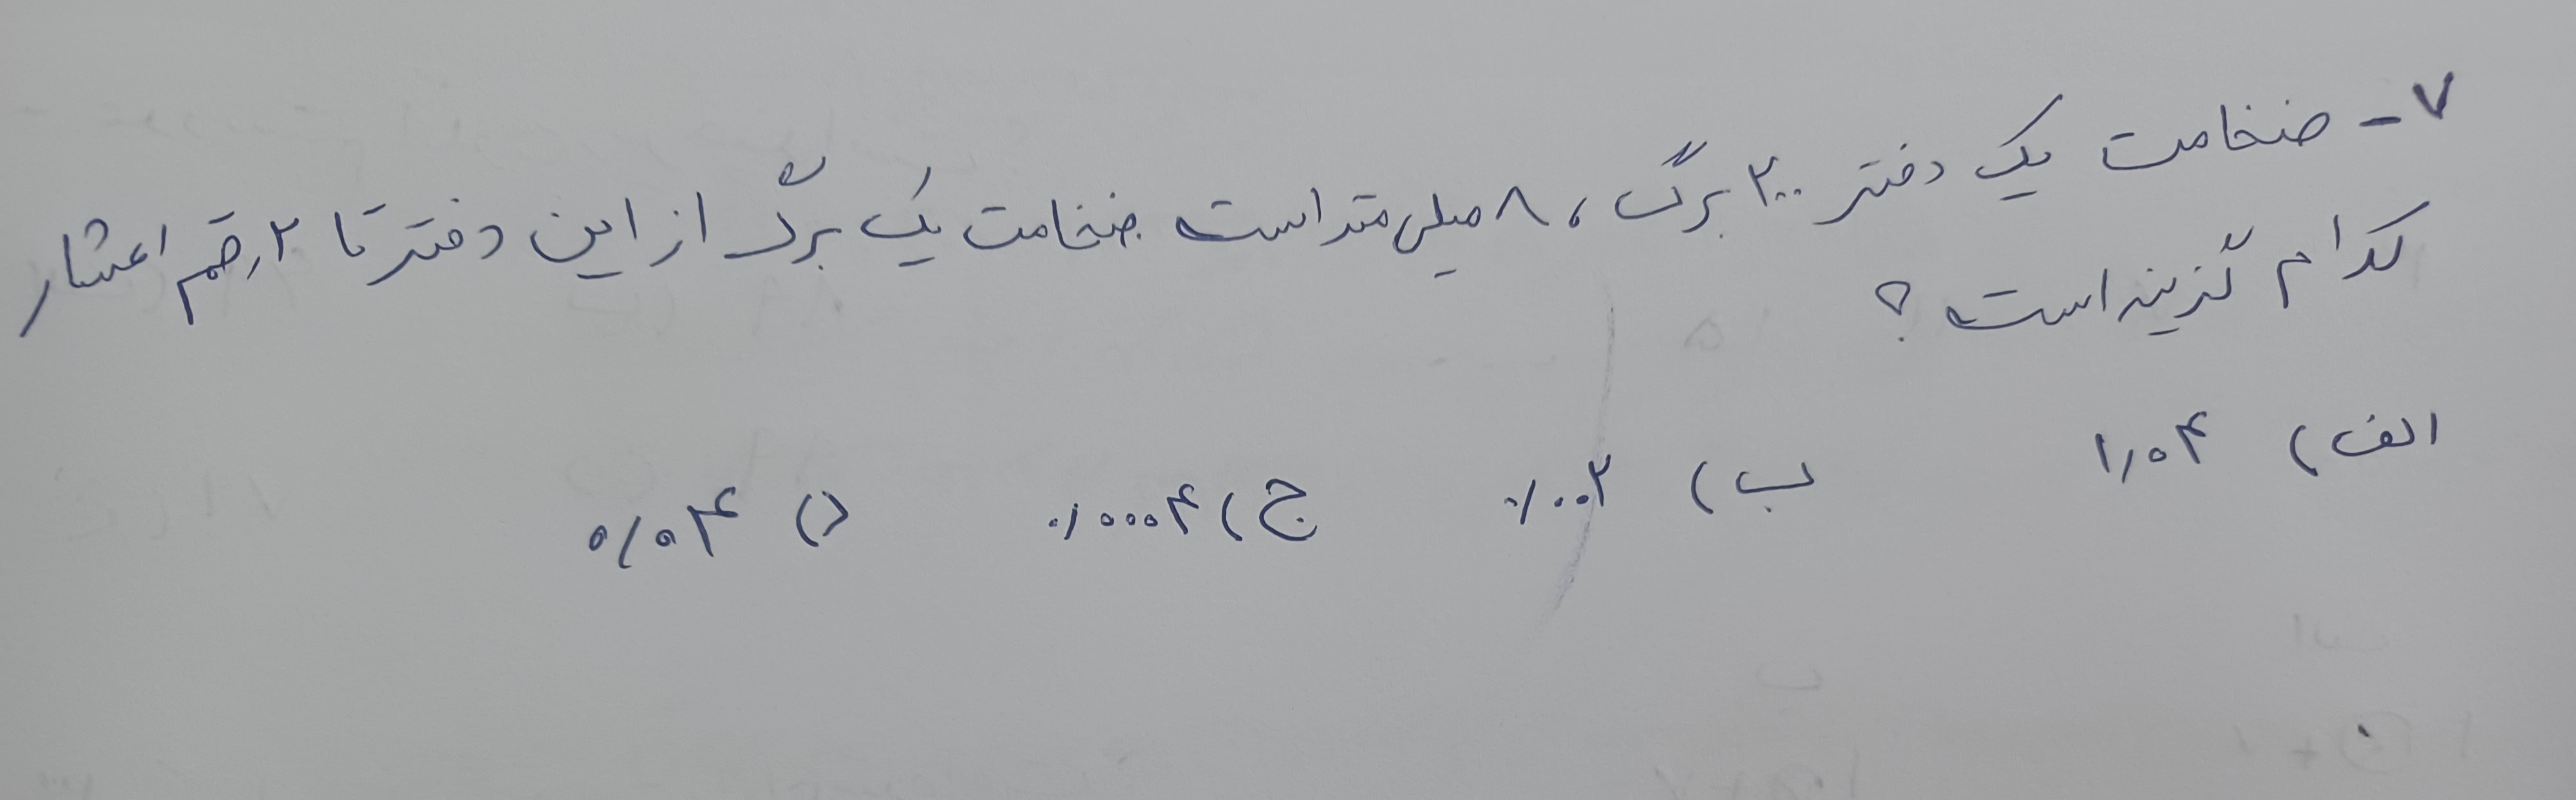 ۷- ضخامت یک دفتر ۲۰۰ برگ، ۸ میلی متر است ضخامت یک برگ از این دفتر تا ۲ رقم اعشار
کدام گزینه است؟
الف) ۱٫۰۴ ب) ۰٫۰۰۲ ج) ۰٫۰۰۰۴ د) ۰٫۰۴